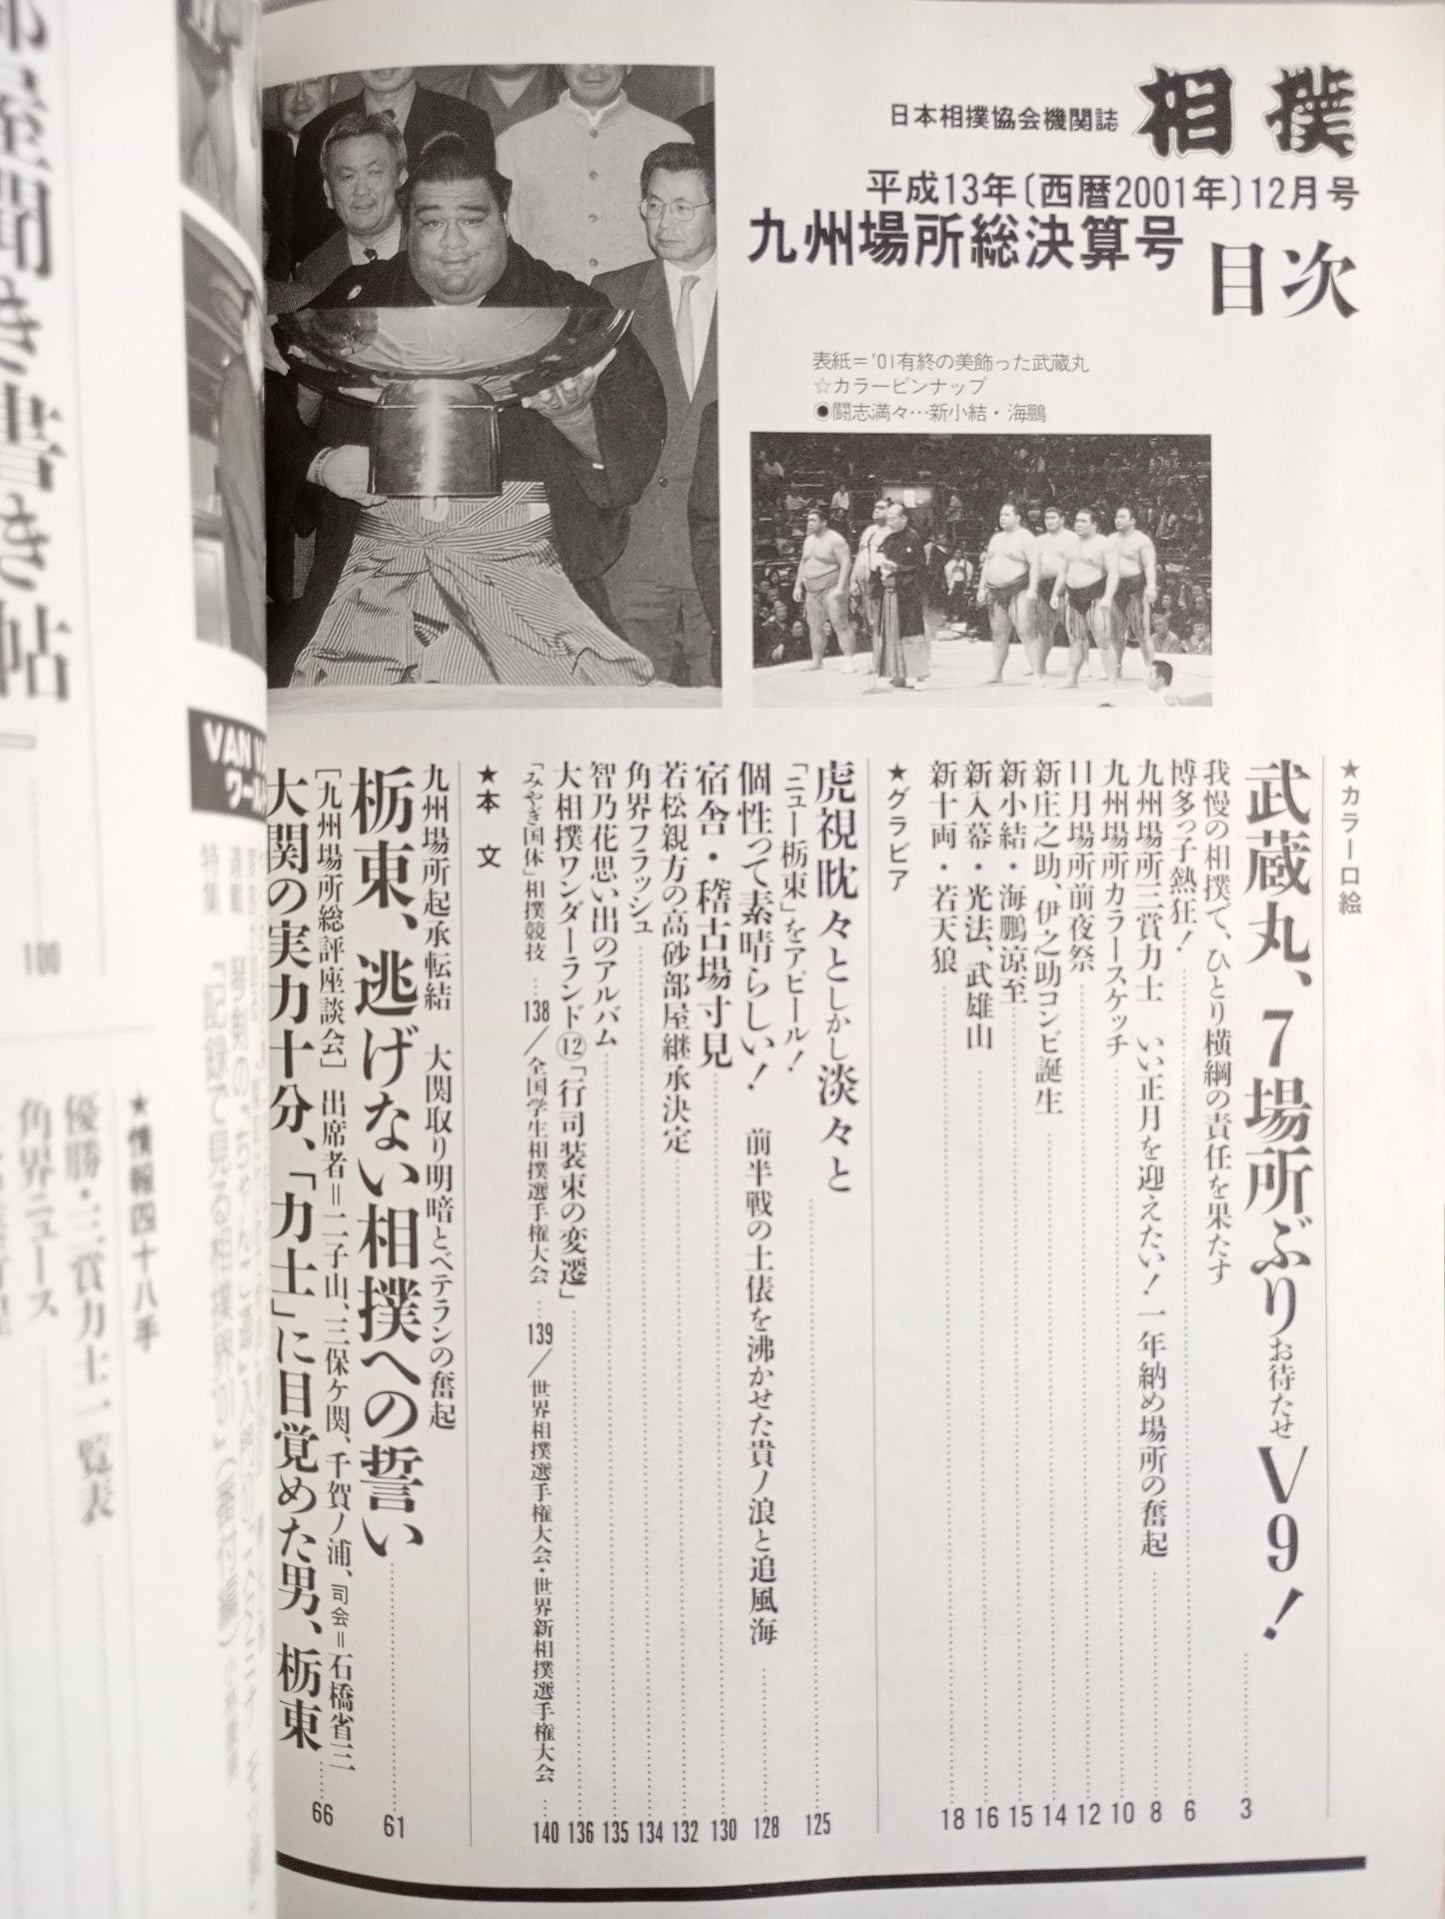 相撲
日本相撲協会機関誌
平成13年〔西暦2001年〕12月号
九州場所総決算号
目次
表紙＝'01有終の美飾った武蔵丸
☆カラーピンナップ
◉闘志満々…新小結・海鵬
★カラー口絵
武蔵丸、7場所ぶりお待たせV9！……3
我慢の相撲で、ひとり横綱の責任を果たす
博多っ子熱狂！……6
九州場所三賞力士　いい正月を迎えたい！一年納め場所の奮起……8
九州場所カラースケッチ……10
11月場所前夜祭……12
新庄之助、伊之助コンビ誕生……14
新小結・海鵬涼至……15
新入幕・光法、武雄山……16
新十両・若天狼……18
★グラビア
虎視眈々としかし淡々と……125
「ニュー栃東」をアピール！
個性って素晴らしい！　前半戦の土俵を沸かせた貴ノ浪と追風海……128
宿舎・稽古場寸見……130
若松親方の高砂部屋継承決定……132
角界フラッシュ……134
智乃花思い出のアルバム……135
大相撲ワンダーランド⑫「行司装束の変遷」……136
「みやぎ国体」相撲競技…138／全国学生相撲選手権大会…139／世界相撲選手権大会・世界新相撲選手権大会…140
★本文
九州場所起承転結　大関取り明暗とベテランの奮起
栃東、逃げない相撲への誓い……61
［九州場所総評座談会］出席者＝二子山、三保ケ関、千賀ノ浦、司会＝石橋省三
大関の実力十分、「力士」に目覚めた男、栃東……66
VAN
ワール
特集　「記録で見る相撲界'01」（番付編）
部屋聞き書き帖』……100
★情報四十八手
優勝・三賞力士一覧表
角界ニュース